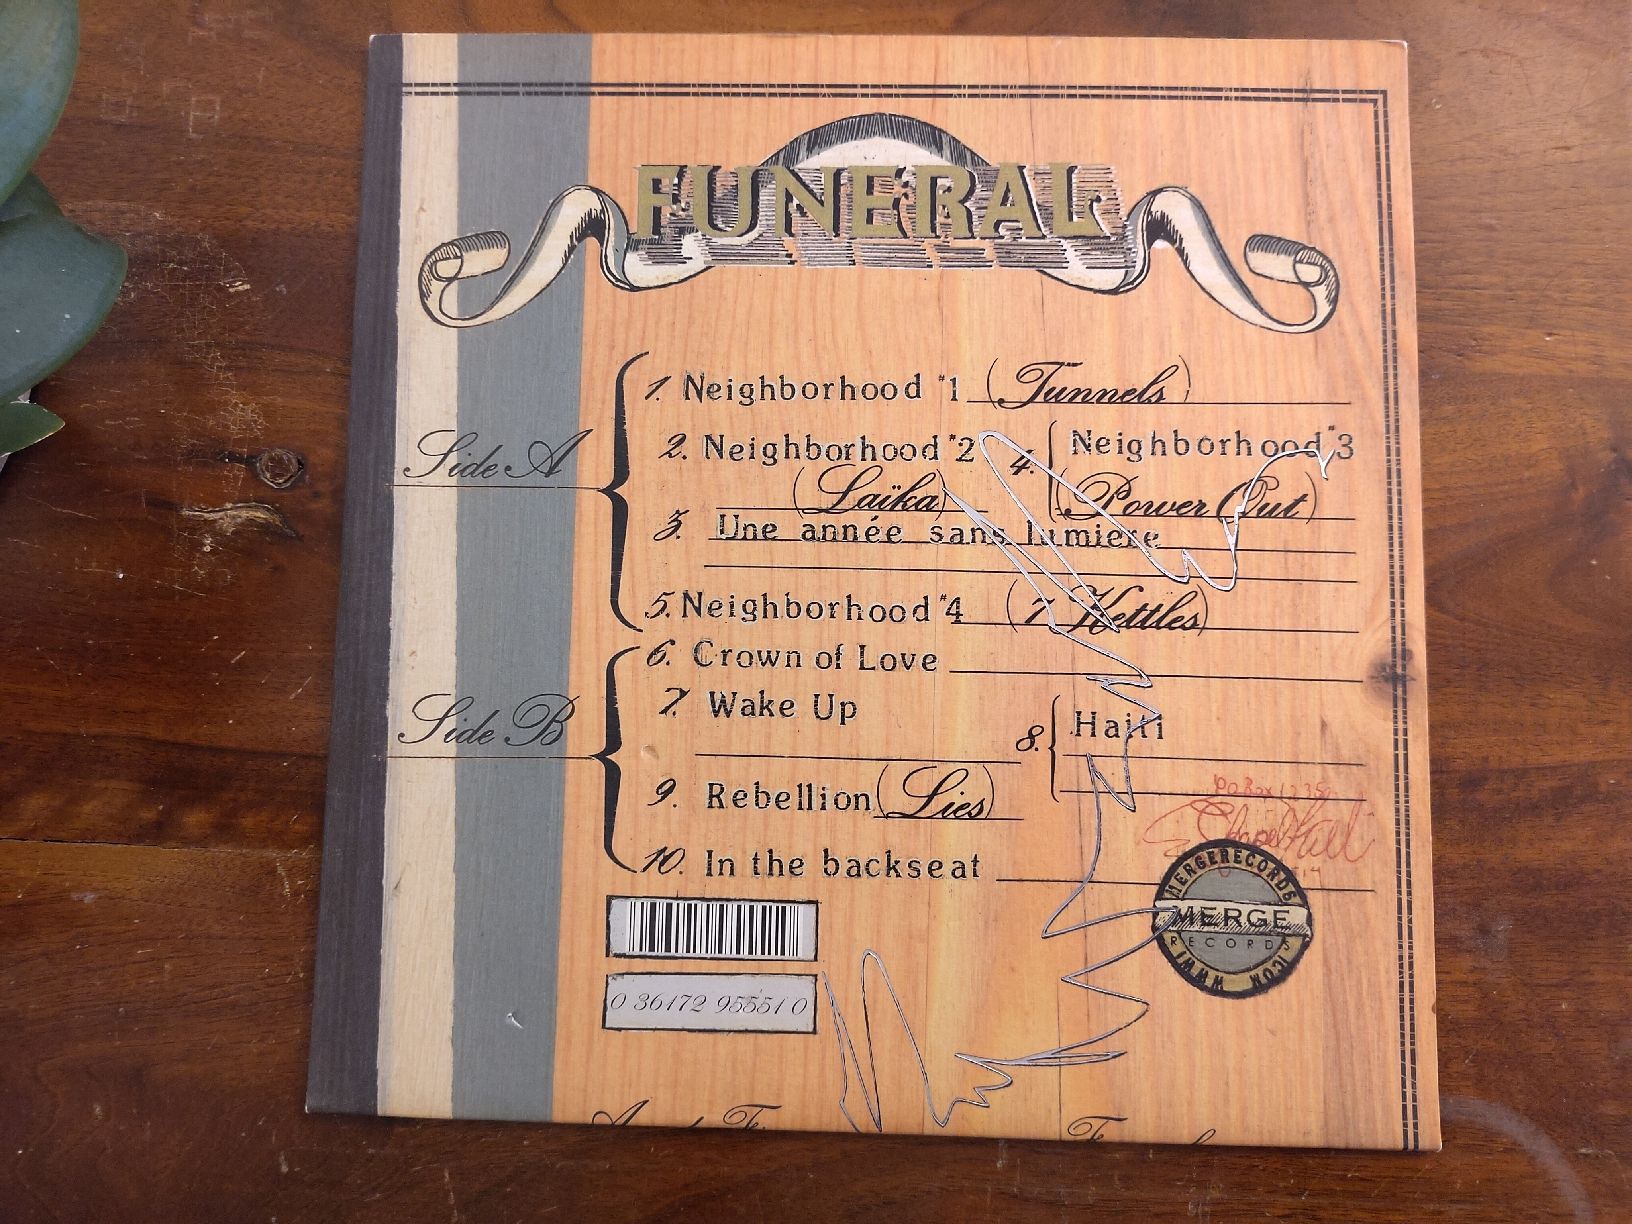 FUNERAL
Side A
1. Neighborhood #1 (Tunnels)
2. Neighborhood #2
(Laïka)
3. Une année sans lumiere
4. Neighborhood #3
(Power Out)
5. Neighborhood #4 (7 Kettles)
Side B
6. Crown of Love
7. Wake Up
8. Haiti
9. Rebellion (Lies)
10. In the backseat
0 36172 95551 0
Chapel Hill
MERGERECORDS
MERGE
RECORDS
WWW
.COM